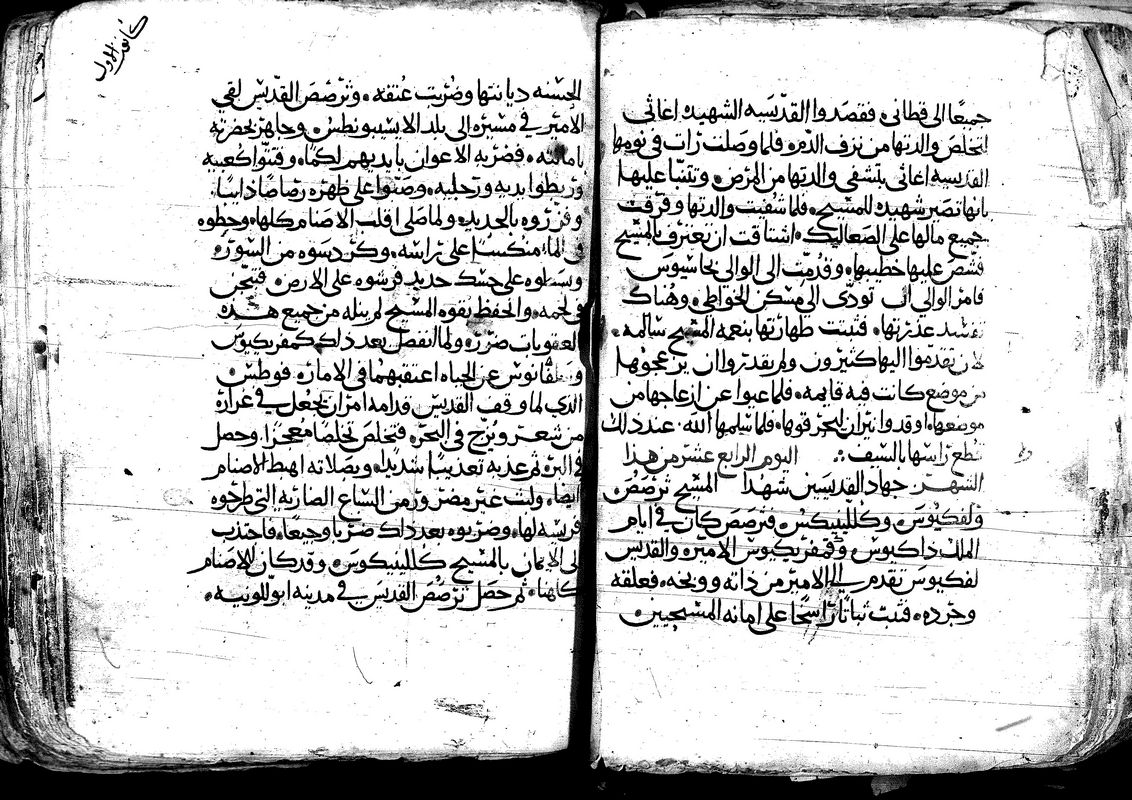 جميعًا الى قطاني. فقصدوا القديسه الشهيده اغاثي
لتخلص والدتها من نزف الدم. فلما وصلت رات في نومها
القديسه اغاثي بتشفي والدتها من المرض. وتنبا عليها
بانها تصير شهيده للمسيح. فلما شفيت والدتها وفرقت
جميع مالها على الصعاليك. اشتاقت ان تعترف بالمسيح
فشص عليها خطيبها. وقدمت الى الوالي بخاسيوس
فامر الوالي ان تودى الى مسكن الخواطي. وهناك
تفسد عذرتها. فثبتت طهارتها بنعمه المسيح سالمه.
لان تقدموا اليها كثيرون ولم يقدروا ان يزعجوها
من موضع كانت فيه قايمه. فلما عيوا عن ازعاجها من
موضعها. اوقدوا نيران البحر قوها. فلما سلمها الله. عند ذلك
قطع راسها بالسيف ؞ اليوم الرابع عشر من هذا
الشهر. جهاد القديسين شهدا المسيح ترصص
ولفكيوس وكللينيكس. فترصص كان في ايام
الملك داكيوس وقمفريكيوس الامير. والقديس
لفكيوس تقدم الى الامير من ذاته ووبخه. فعلقه
وجرده. فثبت ثباتًا راسخًا على امانه المسيحيين
كانون الاول
الحسنه ديانتها وضربت عنقه. وترصص القديس لقي
الامير في مسيره الى بلد الابسيونطس. وجاهر بحضرته
بامانته. فضربه الاعوان بايديهم لكمًا. وفتتوا كعبيه
وربطوا يديه ورجليه. وصبوا على ظهره رصاصًا دايبًا.
وقزروه بالحديد. ولما صلى اقلب الاصنام كلها. وحطوه
في الما منكسًا على راسه. وكردسوه من السور.
وبسطوه على حسك حديد فرشوه على الارض فتبحن
في لحمه. والحفظ بقوه المسيح لم ينله من جميع هذه
العقوبات ضرر. ولما انفصل بعد ذلك كمفريكيوس
وسلقانوس عن الحياه اعتقبهما في الاماره فوطس
الذي لما وقف القديس قدامه امر ان يجعل في غراره
من شعر ويزج في البحر. فتخلص تخلصًا معجزًا. وحصل
في البر. ثم عذبه تعذيبًا شديدًا. وبصلاته اهبط الاصنام
ايضا. ولبث غير مضرور من السباع الضاريه التي طرحوه
فريسه لها. وضربوه بعد ذلك ضربًا وجيعًا. فاجتذب
الى الايمان بالمسيح كللينيكوس. وقد كان للاصنام
كاهنًا. ثم حصل ترصص القديس في مدينه ابوللونيه.